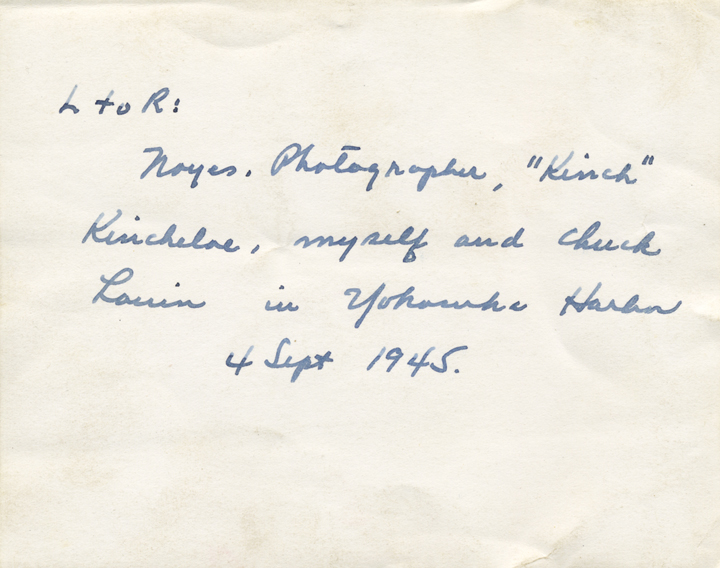 L to R:
Noyes, Photographer, "Kinch"
Kincheloe, myself and Chuck
in Yokosuka Harbor
4 Sept 1945.